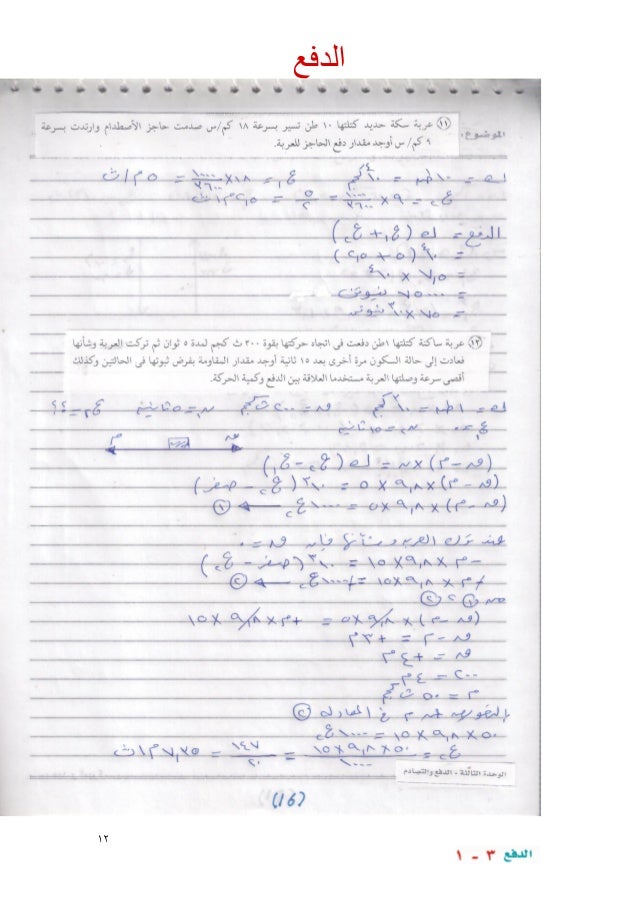 الدفع
الموضوع:
(١١) عربة سكة حديد كتلتها ١٠ طن تسير بسرعة ١٨ كم/س صدمت حاجز الأصطدام وارتدت بسرعة
٩ كم/س أوجد مقدار دفع الحاجز للعربة.
ك = ١٠ طن = ١٠^٤ كجم ع١ = ١٨ × ١٠٠٠/٣٦٠٠ = ٥ م/ث
ع٢ = ٩ × ١٠٠٠/٣٦٠٠ = ٥/٢ = ٢,٥ م/ث
الدفع = ك (ع١ + ع٢)
= ١٠^٤ (٥ + ٢,٥)
= ٧,٥ × ١٠^٤
= ٧٥٠٠٠ نيوتن
= ٧٥ × ١٠^٣ نيوتن
(١٣) عربة ساكنة كتلتها ١ طن دفعت فى اتجاه حركتها بقوة ٢٠٠ ث كجم لمدة ٥ ثوان ثم تركت العربة وشأنها
فعادت إلى حالة السكون مرة أخرى بعد ١٥ ثانية أوجد مقدار المقاومة بفرض ثبوتها فى الحالتين وكذلك
أقصى سرعة وصلتها العربة مستخدما العلاقة بين الدفع وكمية الحركة.
ك = ١ طن = ١٠^٣ كجم ق = ٢٠٠ ث كجم ن١ = ٥ ثانية ع٢ = ؟؟
ع١ = ٠ ن٢ = ١٥ ثانية
م ق
(ق - م) × ن = ك (ع٢ - ع١)
(ق - م) × ٩,٨ × ٥ = ١٠^٣ (ع٢ - صفر)
(ق - م) × ٩,٨ × ٥ = ١٠٠٠ ع٢ ← (١)
عند ترك العربة وشأنها فإن ق = ٠
- م × ٩,٨ × ١٥ = ١٠^٣ (صفر - ع٢)
+ م × ٩,٨ × ١٥ = + ١٠٠٠ ع٢ ← (٢)
من (١) ، (٢)
(ق - م) × ٩,٨ × ٥ = + م × ٩,٨ × ١٥
ق - م = + ٣ م
ق = + ٤ م
٢٠٠ = ٤ م
م = ٥٠ ث كجم
بالتعويض عن م فى المعادلة (٢)
٥٠ × ٩,٨ × ١٥ = ١٠٠٠ ع٢
ع٢ = ٥٠ × ٩,٨ × ١٥/١٠٠٠ = ١٤٧/٢٠ = ٧,٣٥ م/ث
الوحدة الثالثة - الدفع والتصادم
(16)
١٢
الدفع ٣ - ١